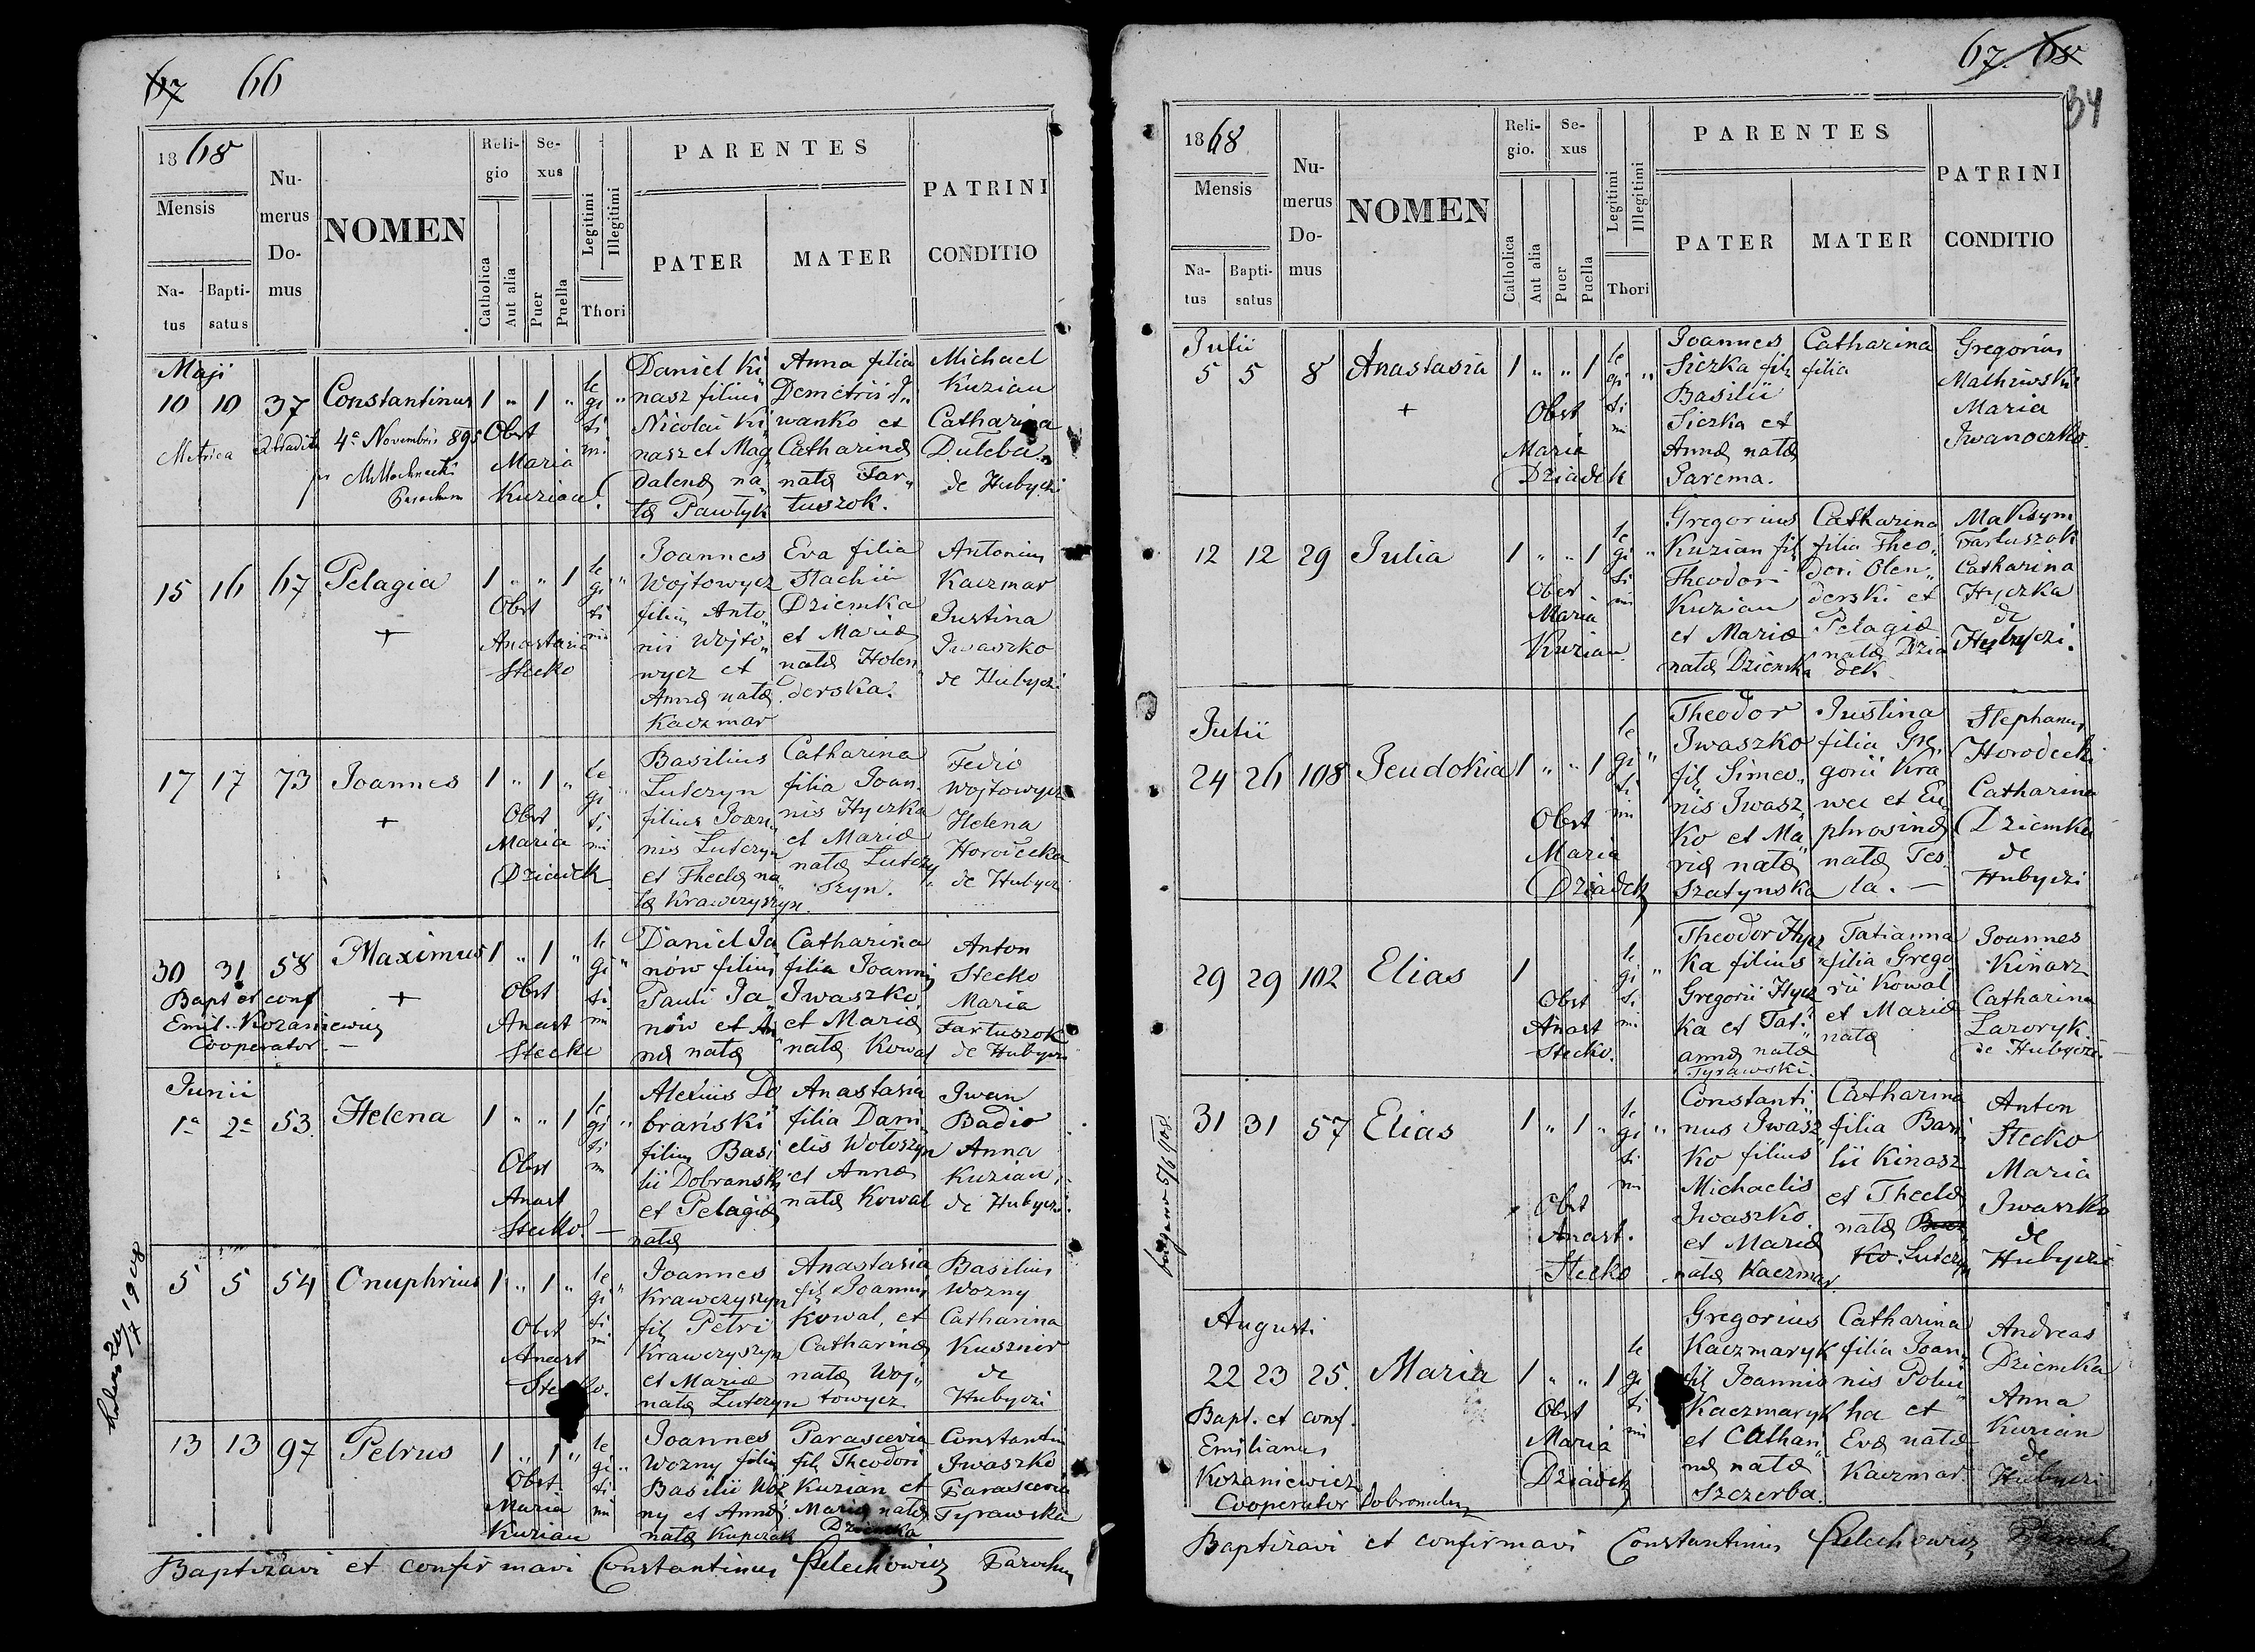 67 66
1868
Mensis
Na-
tus
Bapti-
satus
Nu-
merus
Do-
mus
NOMEN
Reli-
gio
Catholica
Aut alia
Se-
xus
Puer
Puella
Legitimi
Illegitimi
Thori
PARENTES
PATER
MATER
PATRINI
CONDITIO
Maji
10 10 37 Constantinus 1 " 1 "
le
gi "
ti
mi
Metrica extradita 4ª Novembris 895
Parochum
Obst
Maria
Kuzian.
Daniel Ki
nasz filius
Nicolai Ki
nasz et Mag
dalenæ na
tæ Pawłyk
Anna filia
Demetrii J"
wanko et
Catharinæ
natæ Far"
tuszok.
Michael
Kuzian
Catharina
Duleba
de Hubyczi
15 16 67 Pelagia 1 " " 1
le
gi "
ti
mi
+
Obst
Anastasia
Stecko
Joannes
Wojtowycz
filius Anto"
nii Wojto"
wycz et
Annæ natæ
Kaczmar
Eva filia
Stachii
Dziemka
et Mariæ
natæ Holen
derska.
Antonius
Kaczmar
Justina
Jwaszko
de Hubyczi
17 17 73 Joannes 1 " 1 "
le
gi "
ti
mi
+
Obst
Maria
Dziadek
Basilius
Lutczyn
filius Joan"
nis Lutczyn
et Theclæ na
tæ Krawczyszyn.
Catharina
filia Joan"
nis Hyczka
et Mariæ
natæ Lutczy
szyn.
Fedio
Wojtowycz
Helena
Horodecka
de Hubyczi
30 31 58 Maximus 1 " 1 "
le
gi "
ti
mi
Bapt et conf
Emil. Kozaniewicz
Cooperator. —
+
Obst
Anast
Stecko
Daniel Ja
nów filius
Pauli Ja
nów et An
næ natæ
Catharina
filia Joannis
Jwaszko
et Mariæ
natæ Kowal
Anton
Stecko
Maria
Fartuszok
de Hubyczi
Junii
1ª 2ª 53 Helena 1 " " 1
le
gi "
ti
mi
Obst
Anast
Stecko. —
Alexius Do
brański
filius Basi
lii Dobranski
et Pelagiæ
natæ
Anastasia
filia Dani
elis Wołoszyn
et Annæ
natæ Kowal
Jwan
Badio
Anna
Kuzian
de Hubyczi.
5 5 54 Onuphrius 1 " 1 "
le
gi "
ti
mi
Obst
Anast
Stecko.
Joannes
Krawczyszyn
fil Petri
Krawczyszyn
et Mariæ
natæ Lutczyn
Anastasia
fil Joannis
Kowal, et
Catharinæ
natæ Woj"
towycz.
Basilius
Wozny
Catharina
Kusznir
de
Hubyczi
13 13 97 Petrus 1 " 1 "
le
gi "
ti
mi
Obst
Maria
Kuzian
Joannes
Wozny filius
Basilii Woz
ny et Annæ
natæ Kupczak
Parascevia
fil Theodori
Kuzian et
Mariæ natæ
Dziemka
Constantin
Jwaszko
Parascevia
Tyrawska
Baptizavi et confirmavi Constantinus Pelechowicz Parochus
67. 68
34
1868.
Mensis
Na-
tus
Bapti-
satus
Nu-
merus
Do-
mus
NOMEN
Reli-
gio.
Catholica
Aut alia
Se-
xus
Puer
Puella
Legitimi
Illegitimi
Thori
PARENTES
PATER
MATER
PATRINI
CONDITIO
Julii
5 5 8 Anastasia 1 " " 1
le
gi "
ti
mi
+
Obst
Maria
Dziadek
Joannes
Siczka fil
Basilii
Siczka et
Annæ natæ
Jarema.
Catharina
filia
Gregorius
Mathiwski
Maria
Jwanoczko.
12 12 29 Julia 1 " " 1
le
gi "
ti
mi
Obst
Maria
Kuzian.
Gregorius
Kuzian fil
Theodori
Kuzian
et Mariæ
natæ Dziemka
Catharina
filia Theo"
dori Olen"
derski et
Pelagiæ
natæ Dzia
dek
Maksym
Fartuszok
Catharina
Hyczka
de
Hubyczi.
Julii
24 26 108 Jeudokia 1 " " 1
le
gi "
ti
mi
Obst
Maria
Dziadek
Theodor
Jwaszko
fil Simeo"
nis Jwasz"
ko et Ma
riæ natæ
Szatynska
Justina
filia Gre
gorii Kra
wei et Eu
phrosinæ
natæ Tes
la. —
Stephanus
Horodecki
Catharina
Dziemka
de
Hubyczi
29 29 102 Elias 1
le
gi "
ti
mi
Obst
Anast
Stecko.
Theodor Hycz
ka filius
Gregorii Hycz
ka et Tat"
annæ natæ
Tyrawski.
Tatianna
filia Grego
rii Kowal
et Mariæ
natæ
Joannes
Kinasz
Catharina
Lazoryk
de Hubyczi.
31 31 57 Elias 1 " 1 "
le
gi "
ti
mi
Obst
Anast.
Stecko
Constanti
nus Jwasz
ko filius
Michaelis
Jwaszko.
et Mariæ
natæ Kaczmar
Catharina
filia Basi
lii Kinasz
et Theclæ
natæ
Ko. Lutczyn
Anton
Stecko
Maria
Jwaszko
de
Hubyczi
Augusti
22 23 25. Maria 1 " " 1
le
gi
ti
mi
Bapt. et conf.
Emilianus
Kozaniewicz
Cooperator Dobromilen
Obst
Maria
Dziadek
Gregorius
Kaczmaryk
fil Joannis
Kaczmaryk
et Cathari"
næ natæ
Szczerba.
Catharina
filia Joan"
nis Polui"
ha et
Evæ natæ
Kaczmar
Andreas
Dziemka
Anna
Kuzian
de
Hubyczi
Baptizavi et confirmavi Constantinus Pelechowicz Parochus